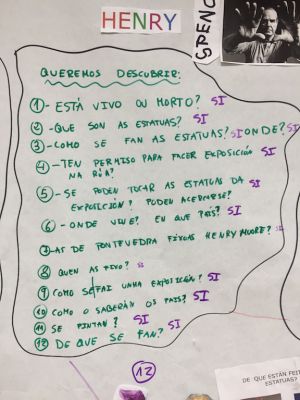 HENRY
SPENC
QUEREMOS DESCUBRIR:
1 - ESTÁ VIVO OU MORTO? SI
2 - QUE SON AS ESTATUAS? SI
3 - COMO SE FAN AS ESTATUAS? SI ONDE? SI
4 - TEN PERMISO PARA FACER EXPOSICIÓN
NA RÚA? SI
5 - SE PODEN TOCAR AS ESTATUAS DA
EXPOSICIÓN? PODEN ACERCARSE? SI
6 - ONDE VIVE? EN QUE PAÍS? SI
7 - AS DE PONTEVEDRA FÍXOAS HENRY MOORE? SI
8 QUEN AS FIXO? SI
9 COMO SE FAI UNHA EXPOSICIÓN? SI
10 COMO O SABERÁN OS PAIS? SI
11 SE PINTAN? SI
12 DE QUE SE FAN? SI
12
DE QUE ESTÁN FEIT
ESTATUAS?